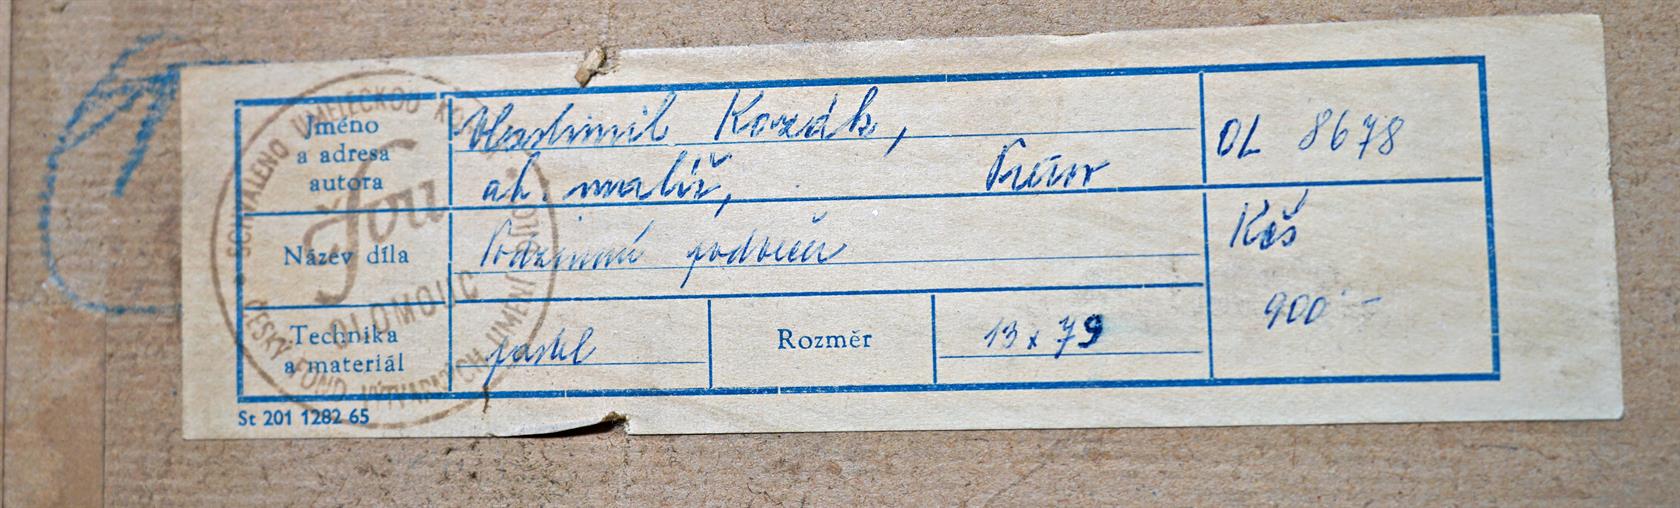 Jméno
a adresa
autora
Vlastimil Kozák,
ak. malíř, Přerov
OL 8678
Název díla
Podzimní podvečer
Kčs
900.-
Technika
a materiál
pastel
Rozměr
13 x 79
St 201 1282 65
SCHVÁLENO UMĚLECKOU
OLOMOUC
ČESKÝ FOND VÝTVARNÝCH UMĚNÍ